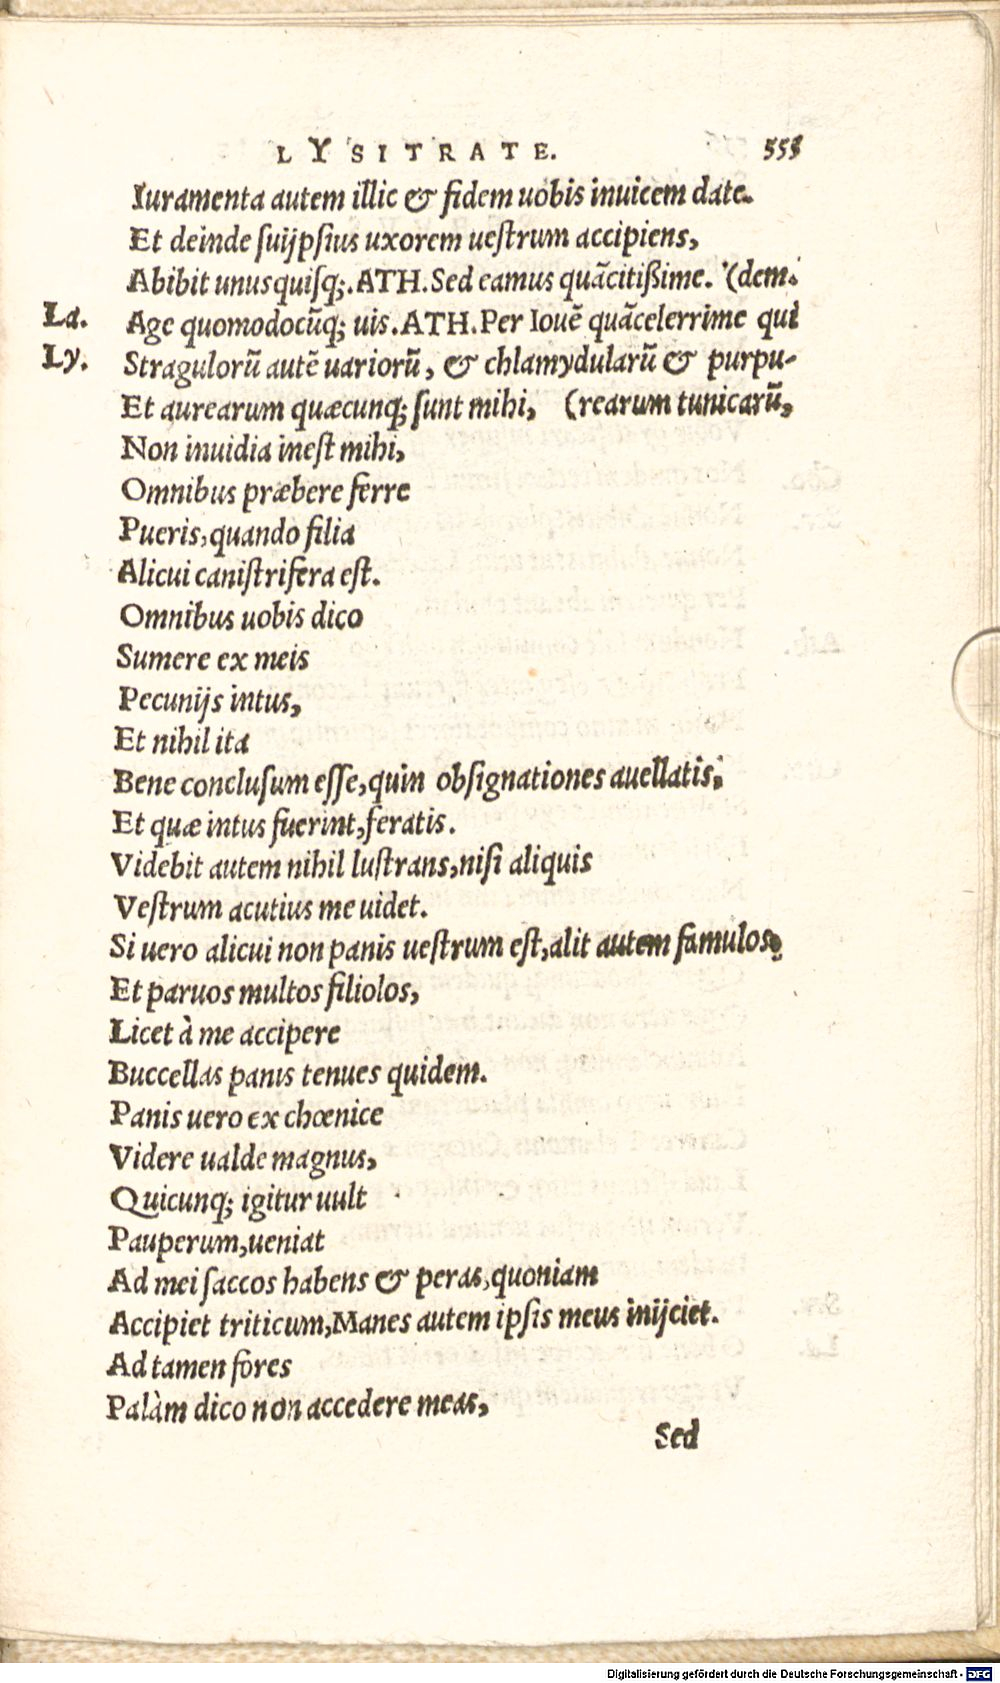 LYSITRATE. 553
Iuramenta autem illic & fidem uobis inuicem date.
Et deinde suijpsius uxorem uestrum accipiens,
Abibit unusquisq;. ATH. Sed eamus quãcitißime. (dem.
La. Age quomodocũq; uis. ATH. Per Iouẽ quãcelerrime qui
Ly. Stragulorũ autẽ uariorũ, & chlamydularũ & purpu-
Et aurearum quæcunq; sunt mihi, (rearum tunicarũ,
Non inuidia inest mihi,
Omnibus præbere ferre
Pueris, quando filia
Alicui canistrifera est.
Omnibus uobis dico
Sumere ex meis
Pecunijs intus,
Et nihil ita
Bene conclusum esse, quin obsignationes auellatis,
Et quæ intus fuerint, feratis.
Videbit autem nihil lustrans, nisi aliquis
Vestrum acutius me uidet.
Si uero alicui non panis uestrum est, alit autem famulos,
Et paruos multos filiolos,
Licet à me accipere
Buccellas panis tenues quidem.
Panis uero ex chœnice
Videre ualde magnus,
Quicunq; igitur uult
Pauperum, ueniat
Ad mei saccos habens & peras, quoniam
Accipiet triticum, Manes autem ipsis meus inijciet.
Ad tamen fores
Palàm dico non accedere meas,
Sed
Digitalisierung gefördert durch die Deutsche Forschungsgemeinschaft - DFG